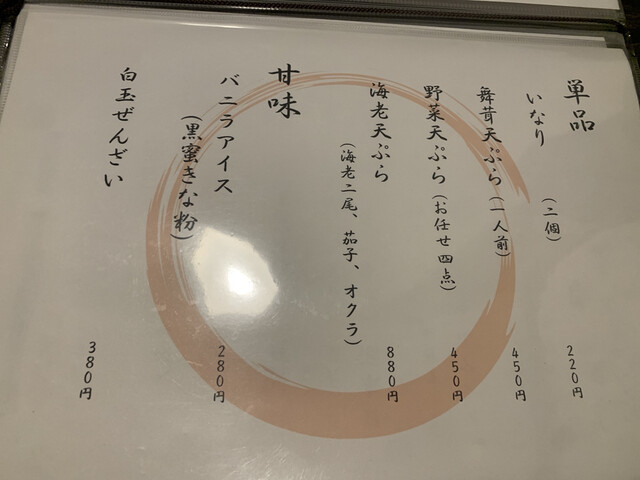 単品
いなり（二個） 220円
舞茸天ぷら（一人前） 450円
野菜天ぷら（お任せ四点） 450円
海老天ぷら 880円
（海老二尾、茄子、オクラ）
甘味
バニラアイス 280円
（黒蜜きな粉）
白玉ぜんざい 380円